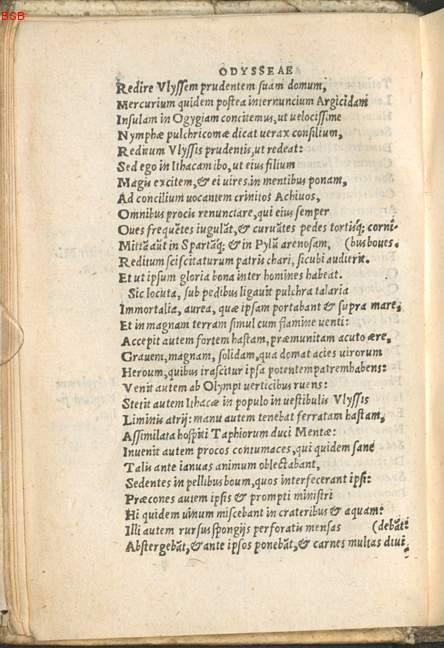 BSB
ODYSSEAE
Redire Vlyssem prudentem suam domum,
Mercurium quidem postea internuncium Argicidam
Insulam in Ogygiam concitemus, ut uelocissime
Nymphæ pulchricomæ dicat uerax consilium,
Reditum Vlyssis prudentis, ut redeat:
Sed ego in Ithacam ibo, ut eius filium
Magis excitem, & ei uires in mentibus ponam,
Ad concilium uocantem crinitos Achiuos,
Omnibus procis renunciare, qui eius semper
Oues frequẽtes iugulãt, & curuãtes pedes tortisq́; corni-
Mittã aũt in Spartãq́; & in Pylũ arenosam, (bus boues.
Reditum sciscitaturum patris chari, sicubi audierit.
Et ut ipsum gloria bona inter homines habeat.
Sic locuta, sub pedibus ligauit pulchra talaria
Immortalia, aurea, quæ ipsam portabant & supra mare,
Et in magnam terram simul cum flamine uenti:
Accepit autem fortem hastam, præmunitam acuto ære,
Grauem, magnam, solidam, qua domat acies uirorum
Heroum, quibus irascitur ipsa potentem patrem habens:
Venit autem ab Olympi uerticibus ruens:
Stetit autem Ithacæ in populo in uestibulis Vlyssis
Liminis atrij: manu autem tenebat ferratam hastam,
Assimilata hospiti Taphiorum duci Mentæ:
Inuenit autem procos contumaces, qui quidem sane
Talis ante ianuas animum oblectabant,
Sedentes in pellibus boum, quos interfecerant ipsi:
Præcones autem ipsis & prompti ministri
Hi quidem uinum miscebant in crateribus & aquam:
Illi autem rursus spongijs perforatis mensas (debãt:
Abstergebãt, & ante ipsos ponebãt, & carnes multas diui-